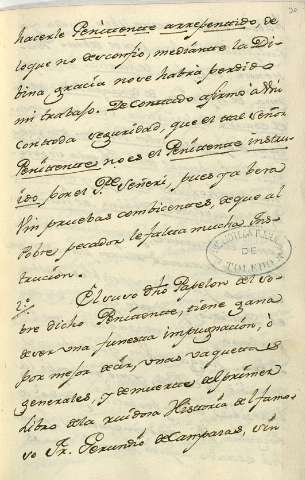 hacerle Penitente arrepentido, de
lo que no desconfio, mediante la Di-
bina gracia no se habrá perdido
mi trabajo. De contado afirmo à Vm
con toda seguridad, que el tal señor
Penitente no es el Penitente instrui-
do, por el Pe. Señeri, pues ya berà
Vm pruebas combicentes, de que al
Pobre pecador le falta mucha Ins-
trucion.
2º. El suso dho Papelon del so-
bre dicho Penitente, tiene gana
de ver una funesta impugnación, ò
por mejor decir, unas vaquetas
generales, y de muerte al primer
libro de la ruidosa Historia del famo-
so Fr. Gerundio de Campazas, sin
DE
TOLEDO